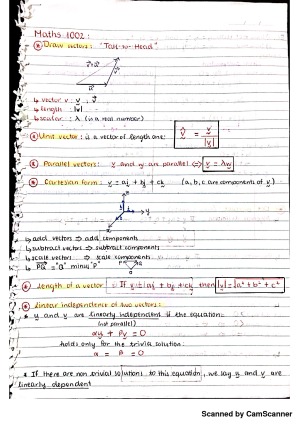 Maths 1002:
Draw vectors: "Tail-to-Head"
↳ vector v: v̰, v⃗
↳ length: |v̰|
↳ scalar: λ (is a real number)
Unit vector: is a vector of length one: v̂ = v̰ / |v̰|
Parallel vectors: v̰ and w̰ are parallel ⇔ v̰ = λw̰
Cartesian form: v̰ = aḭ + bj̰ + ck̰ (a, b, c are components of v̰)
y
x
↳ add vectors ⇒ add components
↳ subtract vectors ⇒ subtract components
↳ scale vectors ⇒ scale components
↳ PQ⃗ = "Q" minus "P"
Length of a vector: If v̰ = aḭ + bj̰ + ck̰, then |v̰| = √a² + b² + c²
Linear independence of two vectors:
v̰ and w̰ are linearly independent if the equation:
(not parallel)
αv̰ + βw̰ = 0
holds only for the trivial solution:
α = β = 0
* If there are non trivial solutions to this equation, we say v̰ and w̰ are
linearly dependent
Scanned by CamScanner